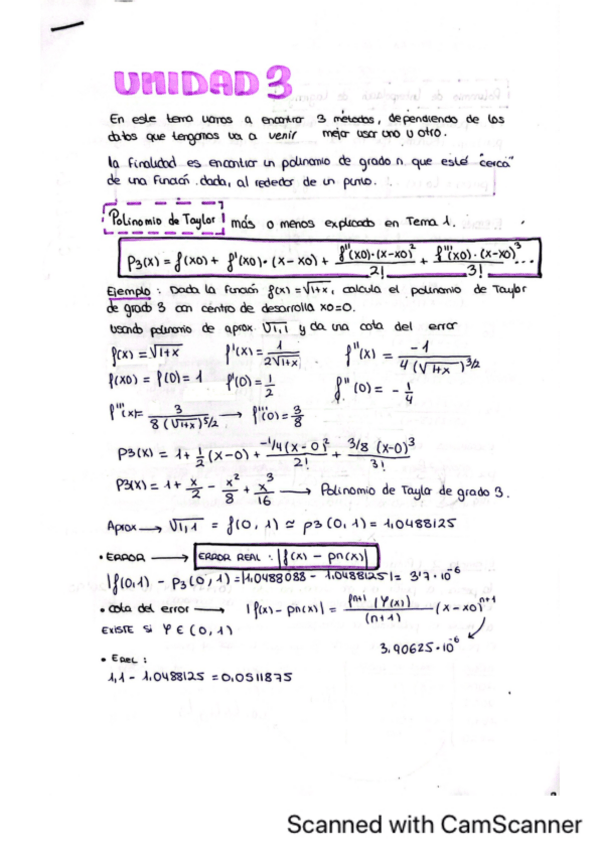 UNIDAD 3
En este tema vamos a encontrar 3 métodos, dependiendo de los
datos que tengamos va a venir mejor usar uno u otro.
la Finalidad es encontrar un polinomio de grado n que esté "cerca"
de una Función dada, al rededor de un punto.
Polinomio de Taylor más o menos explicado en Tema 1.
P3(x) = f(x0) + f'(x0)·(x-x0) + f''(x0)·(x-x0)²/2! + f'''(x0)·(x-x0)³/3! ...
Ejemplo: Dada la función f(x)=√1+x, calcula el polinomio de Taylor
de grado 3 con centro de desarrollo x0=0.
usando polinomio de aprox √1,1 y da una cota del error
f(x) = √1+x f'(x) = 1/2√1+x f''(x) = -1/4(√1+x)3/2
f(x0) = f(0) = 1 f'(0) = 1/2 f''(0) = -1/4
f'''(x) = 3/8(√1+x)5/2 → f'''(0) = 3/8
P3(x) = 1 + 1/2(x-0) + -1/4(x-0)²/2! + 3/8(x-0)³/3!
P3(x) = 1 + x/2 - x²/8 + x³/16 → Polinomio de Taylor de grado 3.
Aprox → √1,1 = f(0,1) ≃ p3(0,1) = 1,0488125
• ERROR → ERROR REAL: |f(x) - pn(x)|
|f(0,1) - P3(0,1) = |1,0488088 - 1,0488125| = 3'7·10⁻⁶
• cota del error → |f(x)-pn(x)| = fⁿ⁺¹(φ(x))/(n+1) (x-x0)ⁿ⁺¹
EXISTE si φ ∈ (0,1)
3,90625·10⁻⁶
• EREL:
1,1 - 1,0488125 = 0,0511875
Scanned with CamScanner